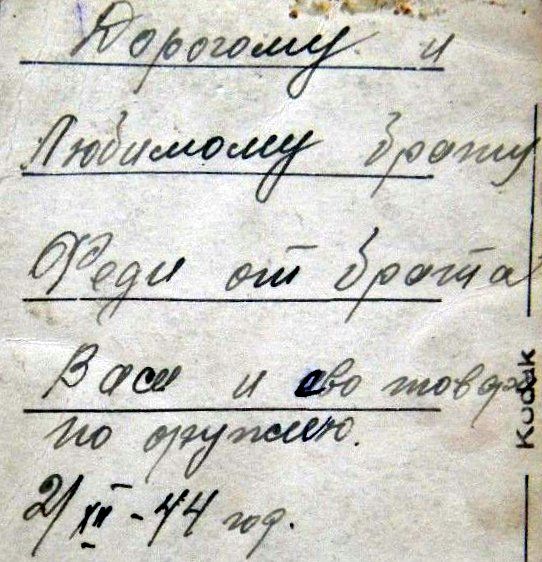 Дорогому и
Любимому брату
Феди от брата
Васи и его товар
по оружию.
2/XII-44 год.
Kodak